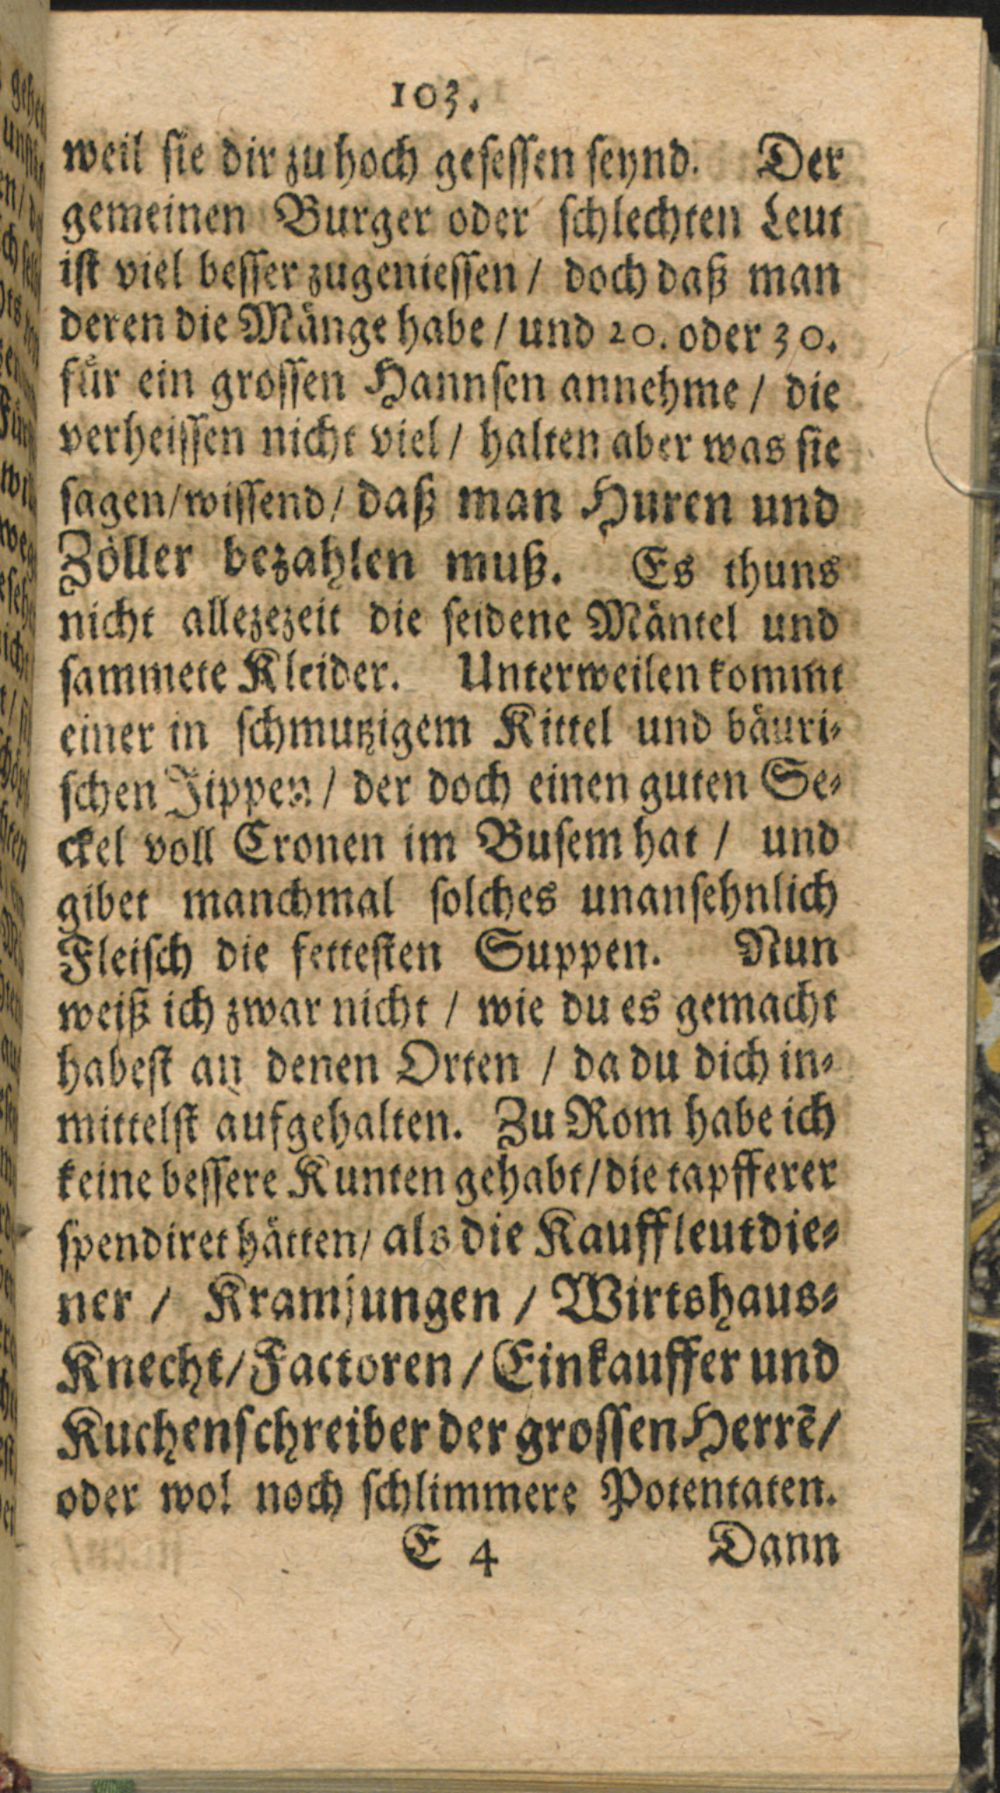 103.
weil sie dir zu hoch gesessen seynd. Der
gemeinen Burger oder schlechten Leut
ist viel besser zugeniessen / doch daß man
deren die Mänge habe / und 20. oder 30.
für ein grossen Hannsen annehme / die
verheissen nicht viel / halten aber was sie
sagen/wissend/ daß man Huren und
Zöller bezahlen muß. Es thuns
nicht allezezeit die seidene Mäntel und
sammete Kleider. Unterweilen kommt
einer in schmutzigem Kittel und bäuri-
schen Jippen / der doch einen guten Se-
ckel voll Cronen im Busem hat / und
gibet manchmal solches unansehnlich
Fleisch die fettesten Suppen. Nun
weiß ich zwar nicht / wie du es gemacht
habest an denen Orten / da du dich in-
mittelst aufgehalten. Zu Rom habe ich
keine bessere Kunten gehabt/die tapfferer
spendiret hätten/ als die Kauffleutdie-
ner / Kramjungen / Wirtshaus-
Knecht/Factoren/Einkauffer und
Kuchenschreiber der grossen Herrẽ/
oder wol noch schlimmere Potentaten.
E 4 Dann